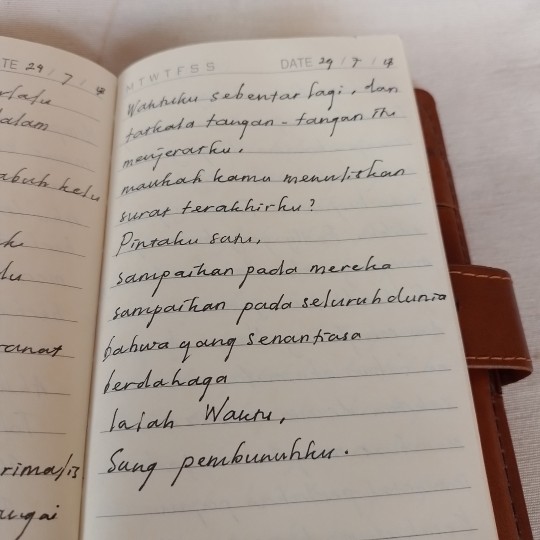 TE 29 / 7 / 18
alam
abuh kelu
lu
anat
rimalis
M T W T F S S DATE 29 / 7 / 18
Waktuku sebentar lagi, dan
tatkala tangan-tangan itu
menjeratku,
maukah kamu menuliskan
surat terakhirku?
Pintaku satu,
sampaikan pada mereka
sampaikan pada seluruh dunia
bahwa yang senantiasa
berdahaga
ialah Waktu,
Sang pembunuhku.